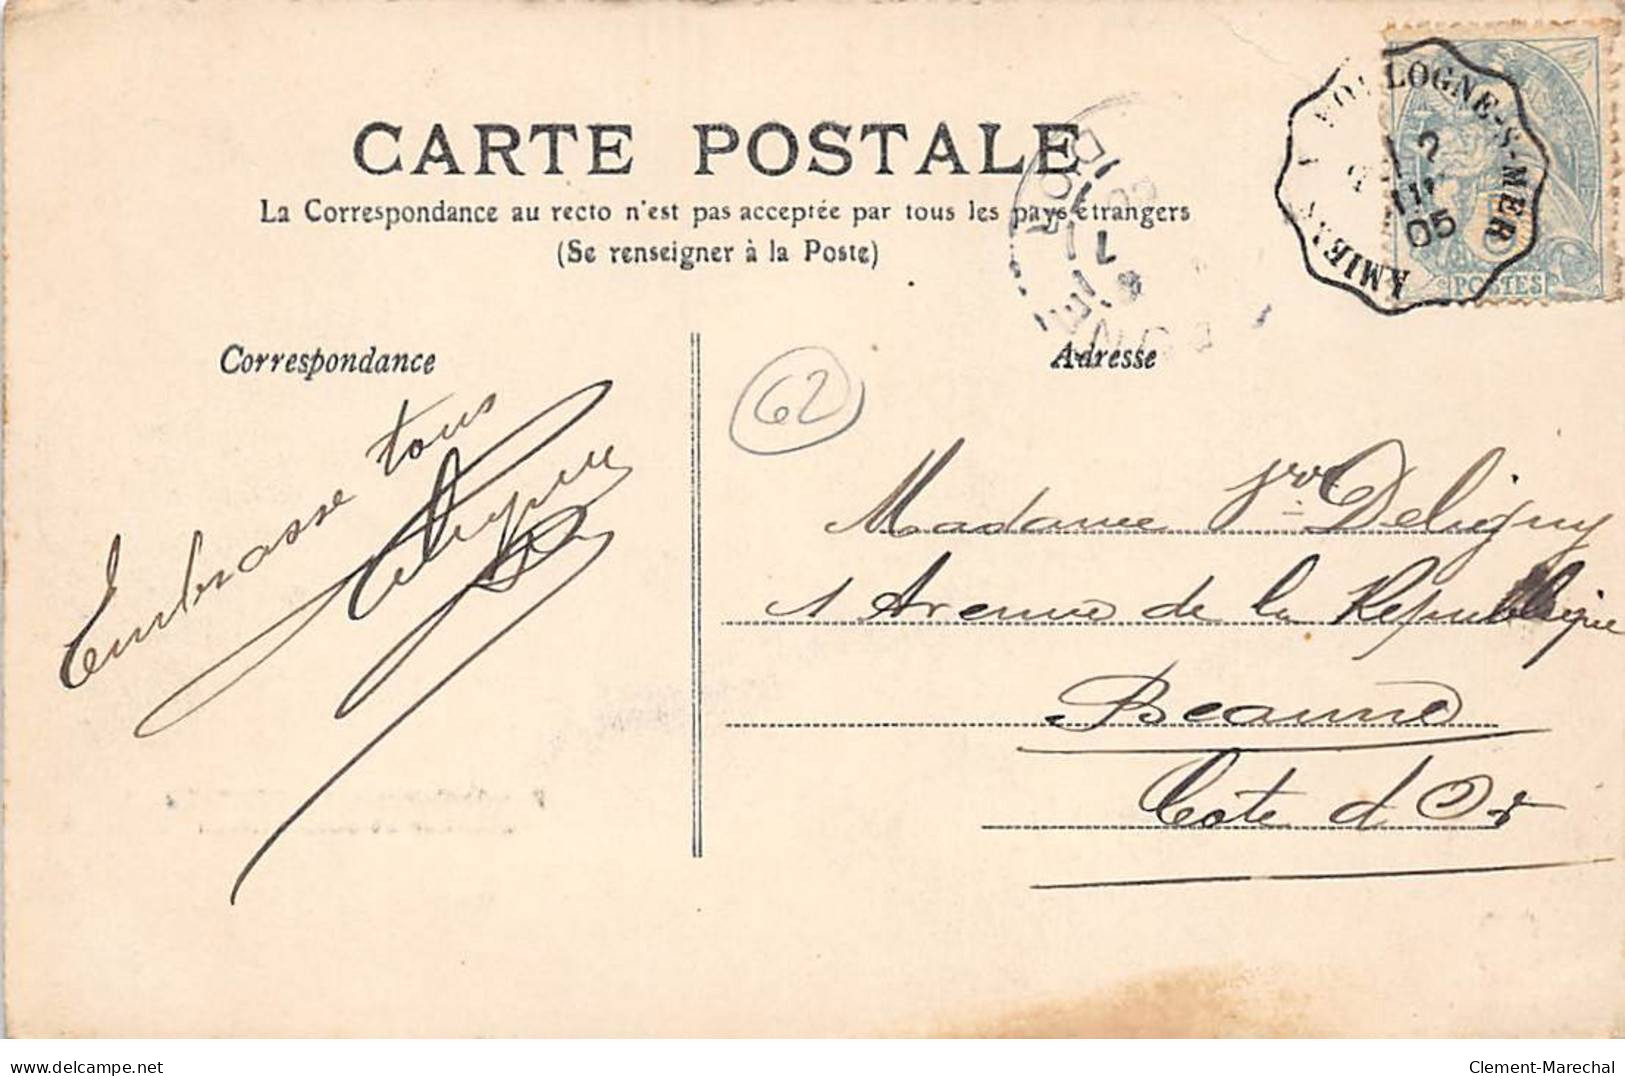 CARTE POSTALE
La Correspondance au recto n'est pas acceptée par tous les pays étrangers
(Se renseigner à la Poste)
BOULOGNE-S-MER
AMIENS
2
05
POSTES
Correspondance
Adresse
62
Embrasse tous
Madame Vve Deligny
1 Avenue de la République
Beaune
Côte d'Or
delcampe.net
Clement-Marechal